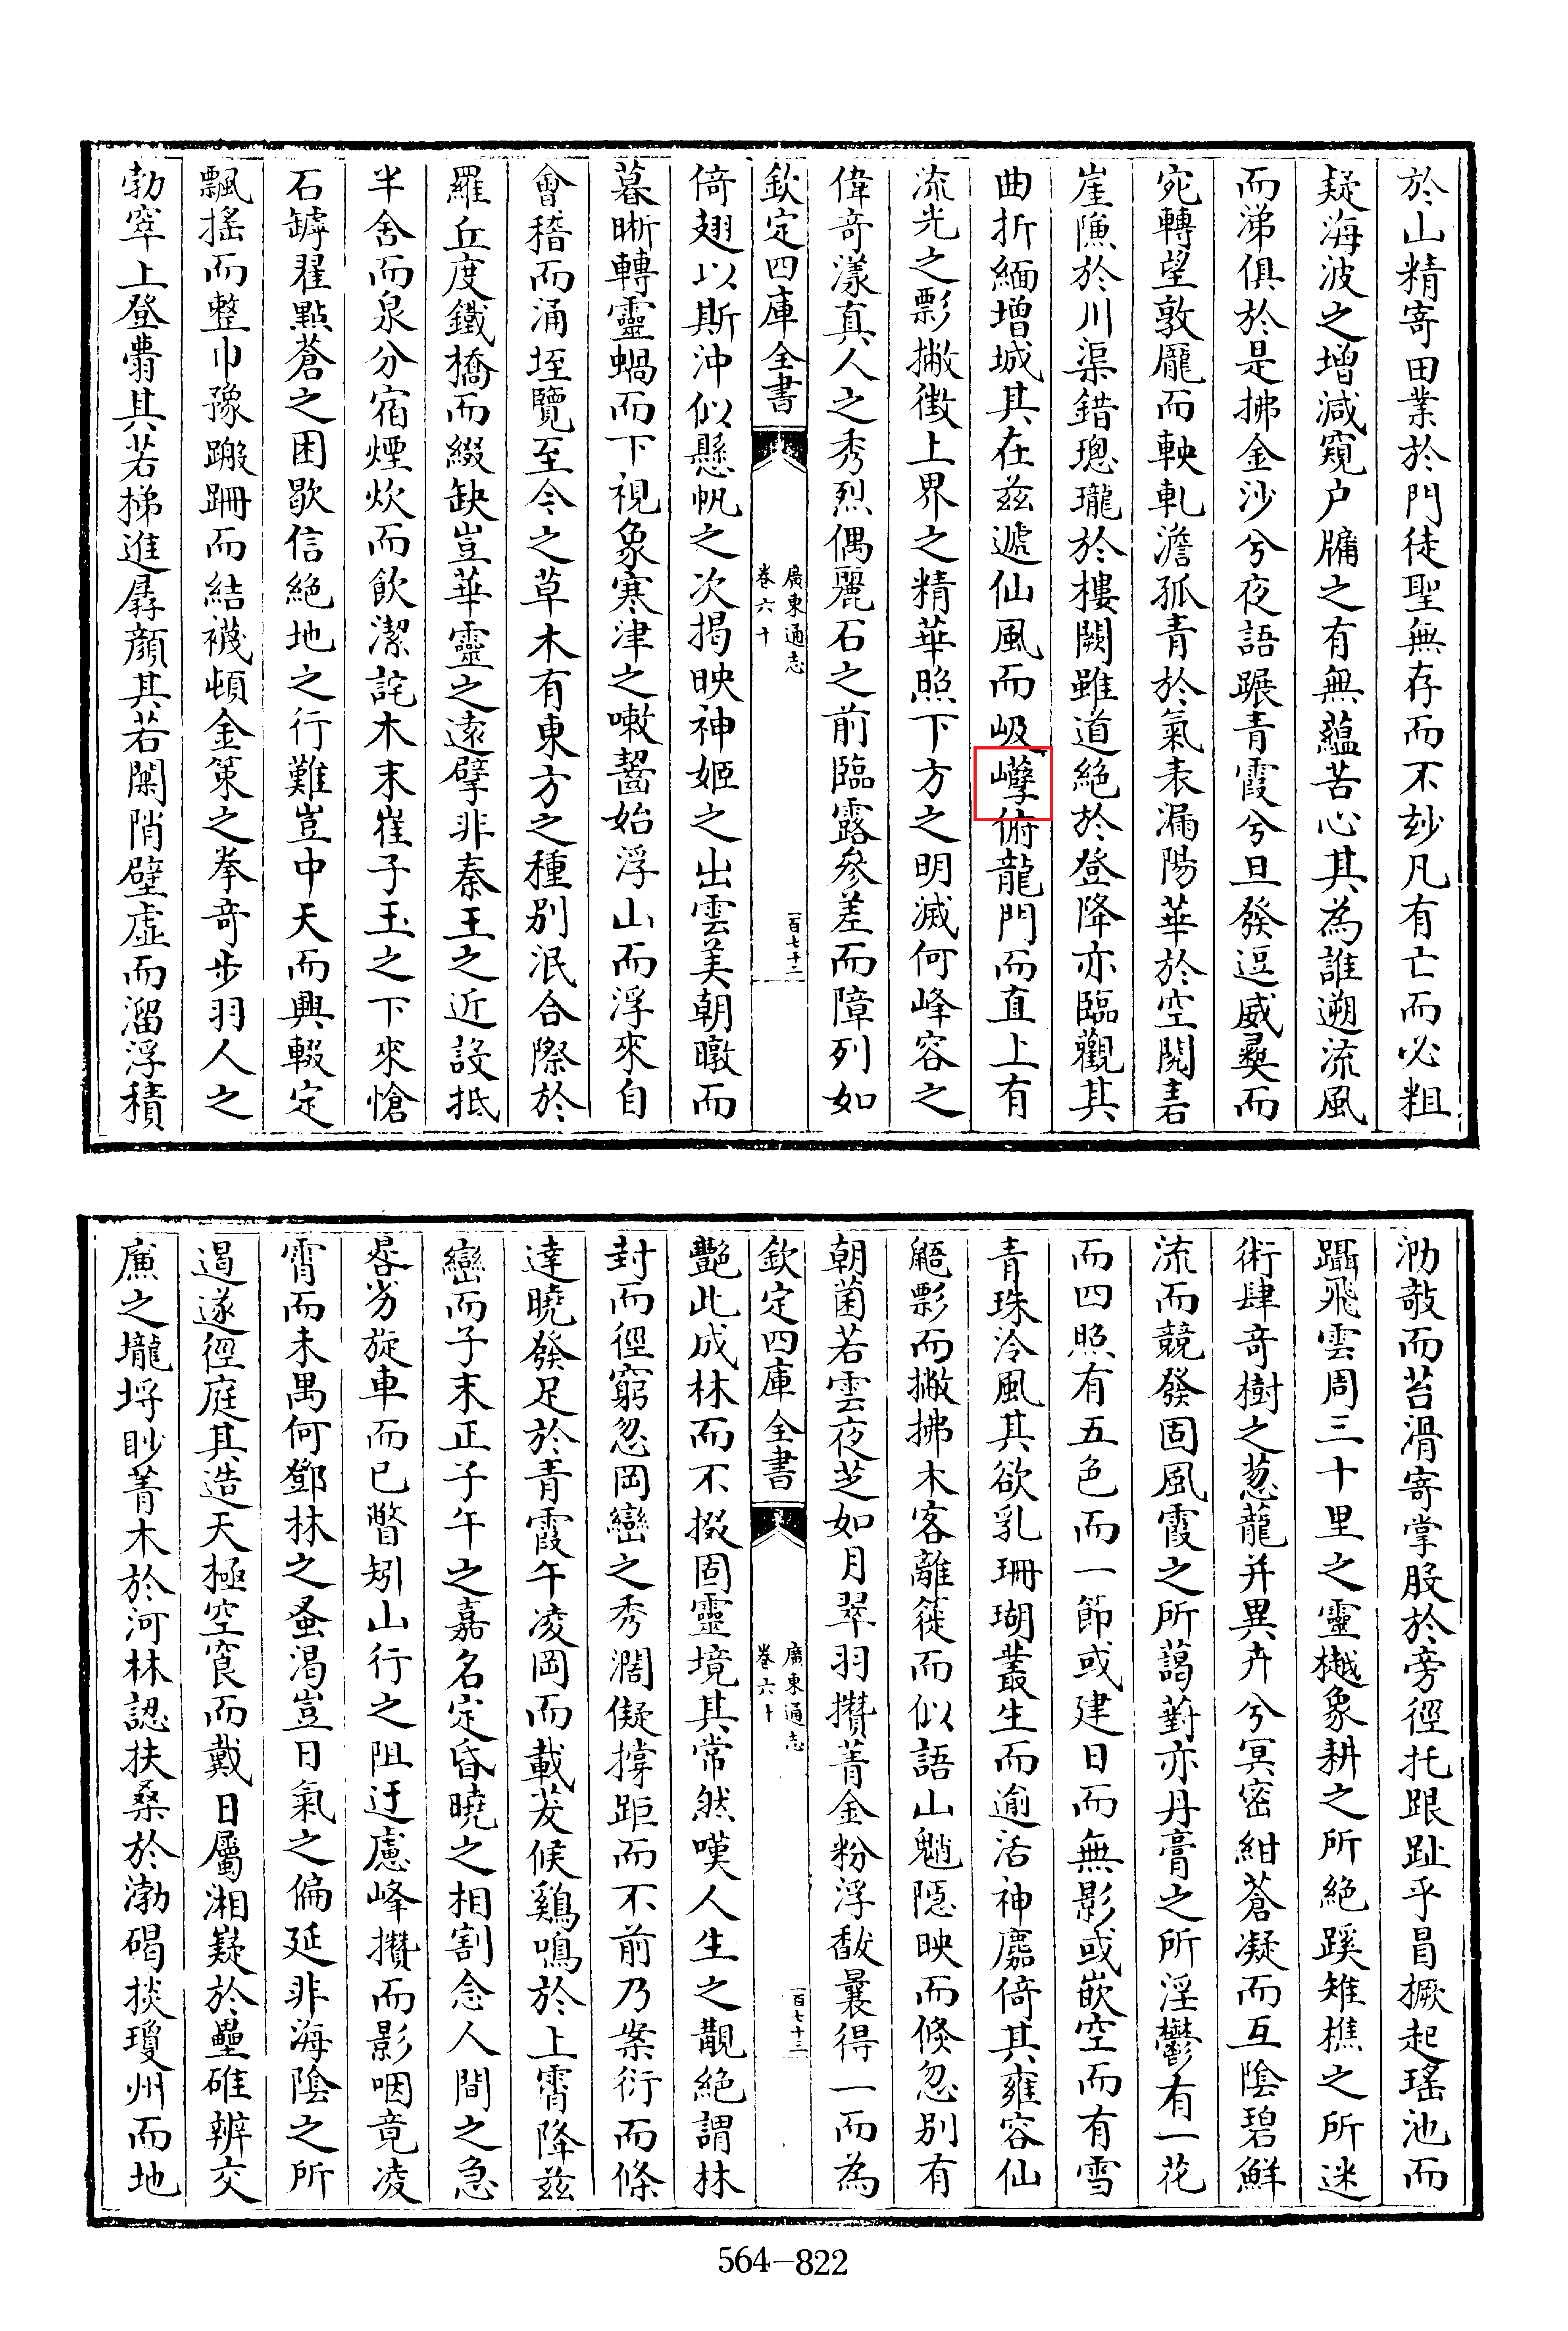 於山精寄田業於門徒聖無存而不玅凡有亡而必粗
疑海波之增減窺户牗之有無蘊苦心其為誰遡流風
而涕俱於是拂金沙兮夜語蹍青霞兮旦發逗威㚇而
宛轉望敦龎而軮軋澹孤青於氣表漏陽華於空闋砉
崖隒於川渠錯璁瓏於樓闕雖道絶於登降亦臨觀其
曲折緬增城其在兹遞仙風而岋㠨俯龍門而直上有
流光之影撇徴上界之精華照下方之明滅何峰容之
偉奇漾真人之秀烈偶麗石之前臨露參差而障列如
欽定四庫全書
廣東通志
卷六十
一百七十二
倚翅以斯沖似懸帆之次揭映神姬之出雲美朝暾而
暮晰轉靈蝸而下視象寒津之嗽齧始浮山而浮來自
會稽而涌垤覽至今之草木有東方之種别泯合際於
羅丘度鐵橋而綴缺豈華靈之遠擘非秦王之近設抵
半舍而泉分宿煙炊而飲潔詫木末崔子玉之下來愴
石罅翟點蒼之困歇信絶地之行難豈中天而興輟定
飄搖而整巾豫蹣跚而結襪頓金策之拳奇步羽人之
勃窣上登㬱其若梯進孱顔其若闑陗壁虚而溜浮積
泐㪣而苔滑寄掌股於旁徑托跟趾乎冒橛起瑤池而
躡飛雲周三十里之靈樾象耕之所絶蹊雉樵之所迷
術肆奇樹之葱蘢并異卉兮冥密紺蒼凝而互陰碧鮮
流而競發固風霞之所藹薱亦丹膏之所淫鬱有一花
而四照有五色而一節或建日而無影或嵌空而有雪
青珠泠風其欲乳珊瑚叢生而逾活神麕倚其雍容仙
鼯影而撇拂木客離蓰而似語山魈隱映而倏忽别有
朝菌若雲夜芝如月翠羽攢菁金粉浮馛曩得一而為
欽定四庫全書
廣東通志
卷六十
一百七十三
艷此成林而不掇固靈境其常然嘆人生之覯絶謂林
封而徑窮忽岡巒之秀濶儗撐距而不前乃案衍而條
達曉發足於青霞午凌岡而載茇候鷄鳴於上霄降兹
巒而子末正子午之嘉名定昏曉之相割念人間之急
晷劣旋車而已瞥矧山行之阻迂慮峰攢而影咽竟凌
霄而未禺何鄧林之蚤渴豈日氣之偏延非海陰之所
遏遂徑庭其造天極空窅而戴日屬湘嶷於壘碓辨交
廉之壠埒眇菁木於河林認扶桑於渤碣掞瓊州而地
564-822